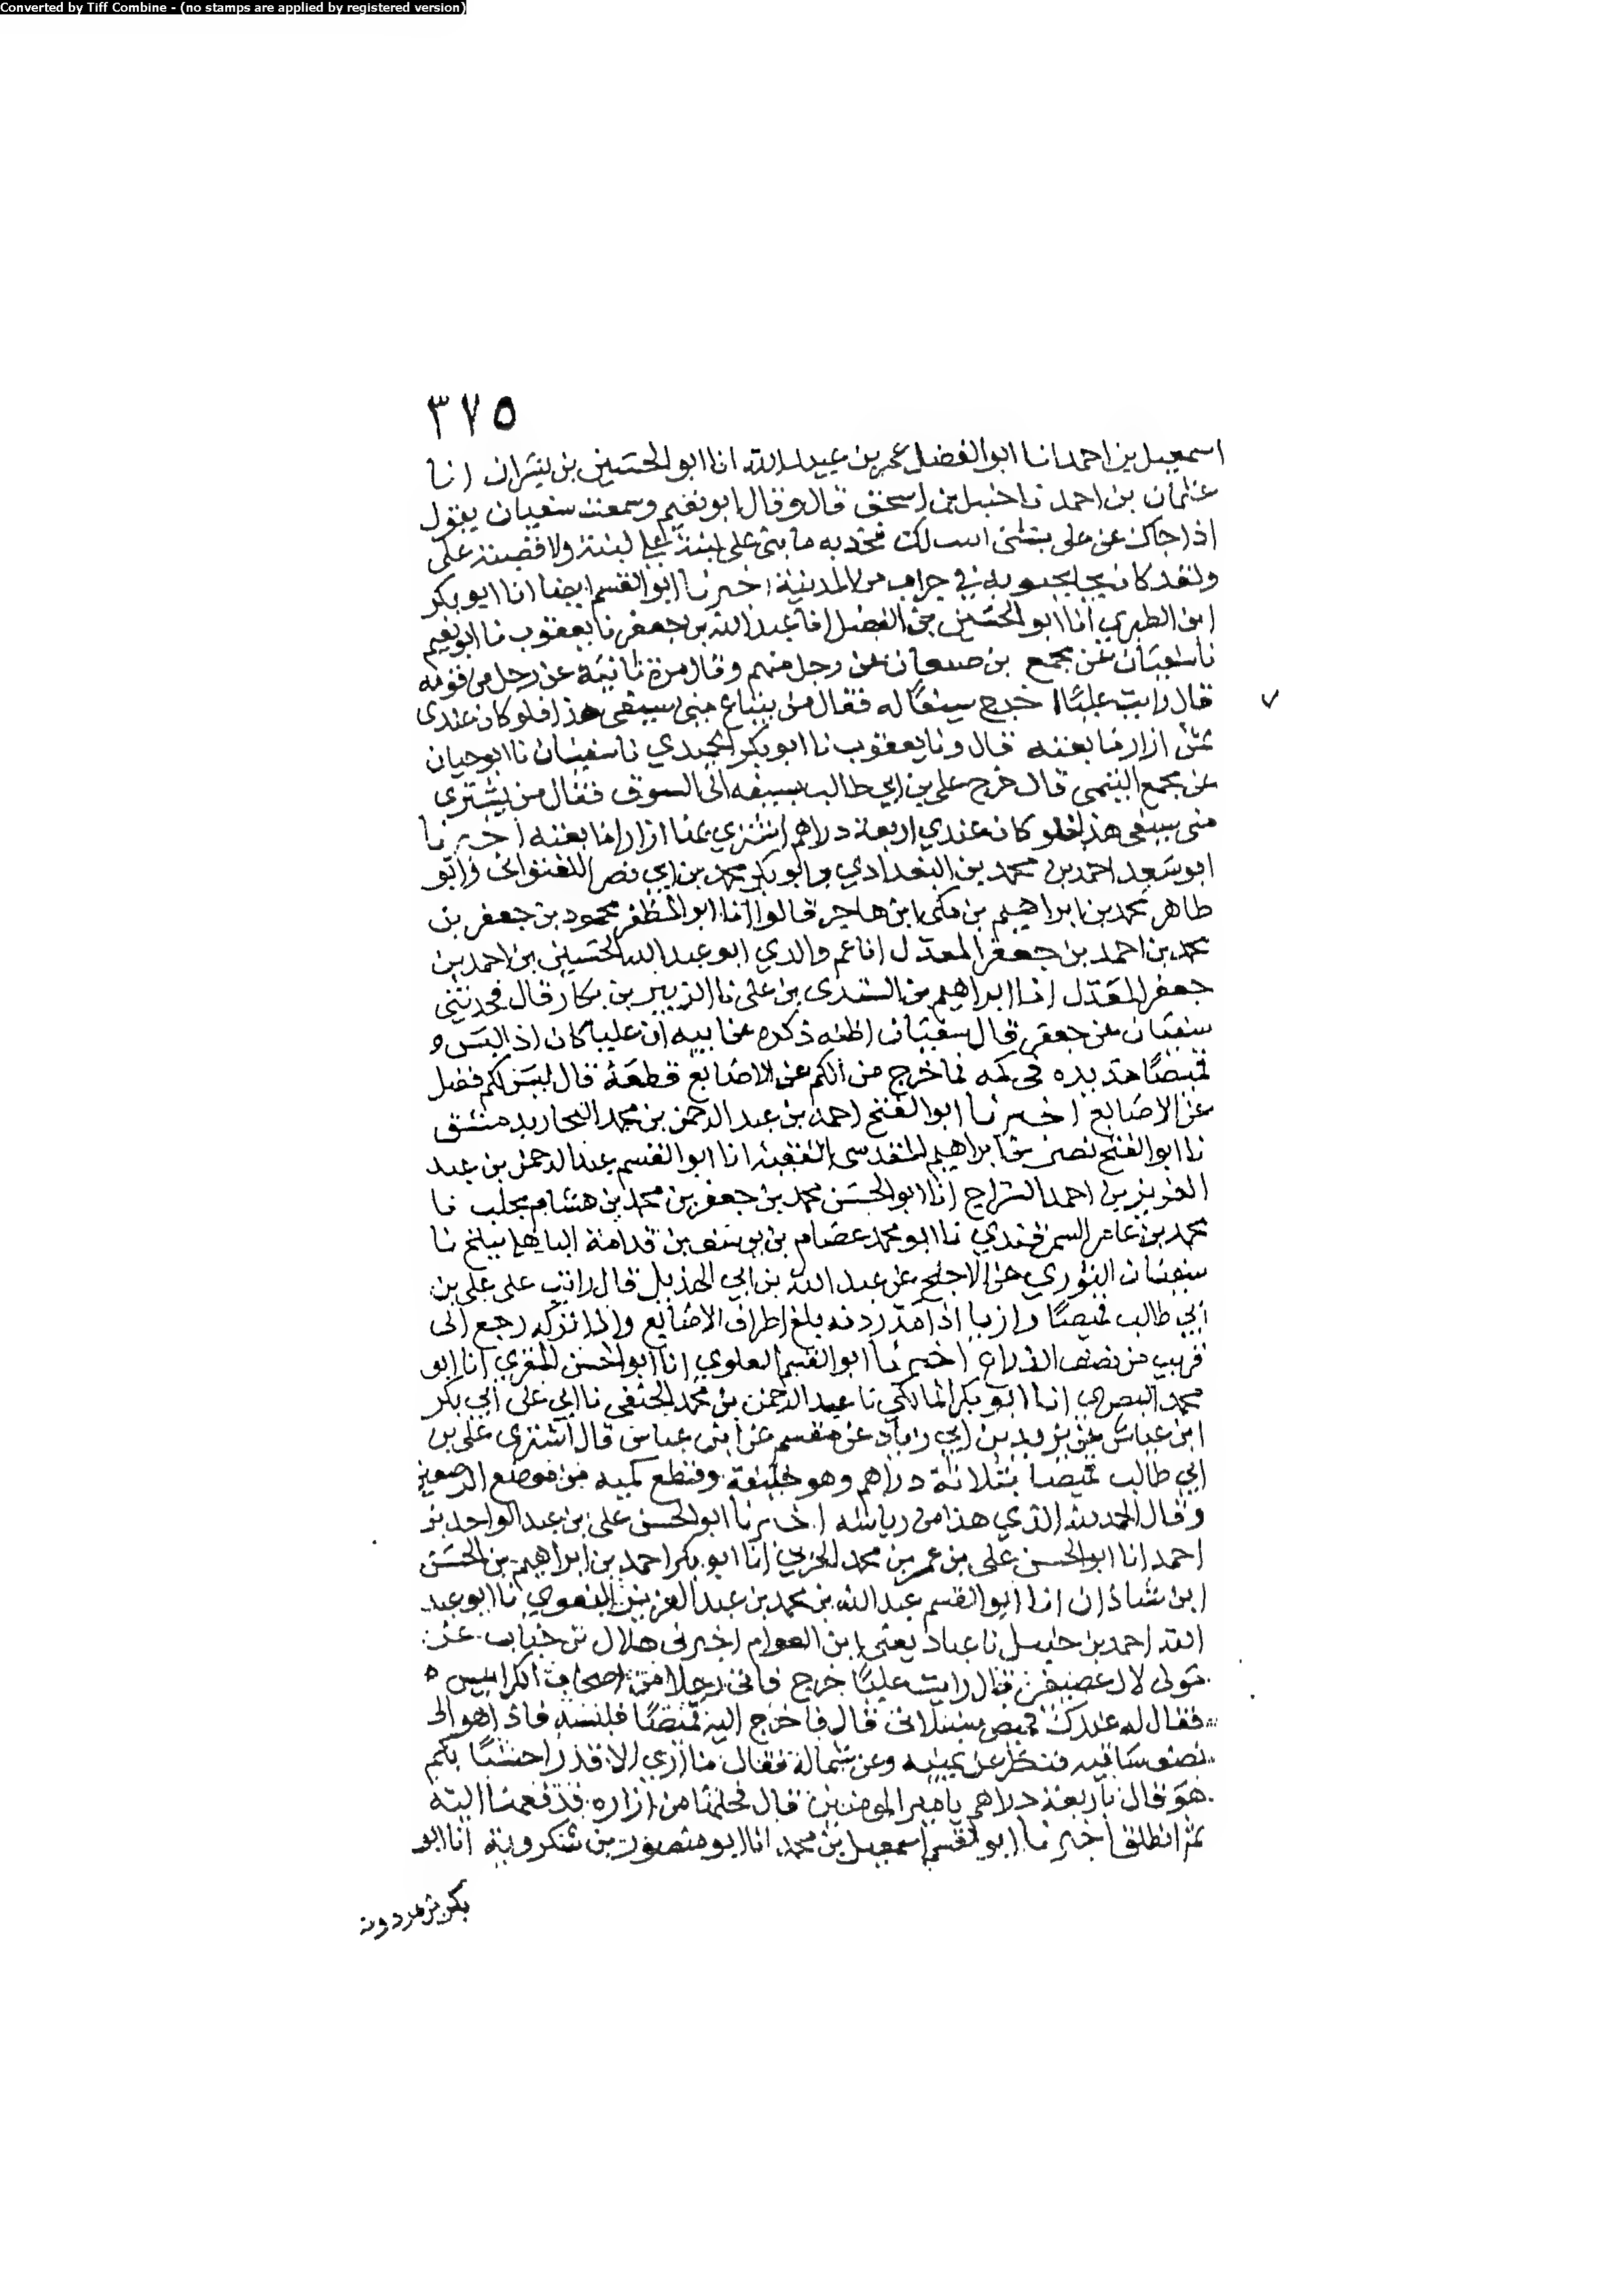 Converted by Tiff Combine - (no stamps are applied by registered version)
٣٧٥
اسمعيل بن احمد انا ابو الفضل عمر بن عبيد الله انا ابو الحسين بن بشران انا
عثمان بن احمد نا حنبل بن اسحق قال وقال ابو نعيم وسمعت سفيان يقول
اذا جاك عن علي بشئ اثبت لك فخذ به ما بنى على لبنة لبنة ولا قصبة على
ولقد كان يجا بجبوبه في جراب من المدينة اخبرنا ابو القسم ايضا انا ابو بكر
ابن الطبري انا ابو الحسين بن الفضل انا عبد الله بن جعفر نا يعقوب نا ابو نعيم
نا سفيان عن مجمع بن صمعان عن رجل منهم وقال مرة ثانية عن رجل من قومه
قال رايت عليا اخرج سيفا له فقال من يبتاع مني سيفي هذا فلو كان عندي
ثمن ازار ما بعته قال ونا يعقوب نا ابو بكر الحميدي نا سفيان نا ابو حيان
عن مجمع التيمي قال خرج علي بن ابي طالب بسيفه الى السوق فقال من يشتري
مني سيفي هذا فلو كان عندي اربعة دراهم اشتري بها ازارا ما بعته اخبرنا
ابو سعد احمد بن محمد بن البغدادي وابو بكر محمد بن ابي نصر اللفتواني وابو
طاهر محمد بن ابراهيم بن مكي ابن هاجر قالوا انا ابو المظفر محمود بن جعفر بن
محمد بن احمد بن جعفر المعدل انا عم والدي ابو عبد الله الحسين بن احمد بن
جعفر المعدل انا ابراهيم بن السندي بن علي نا الزبير بن بكار قال فحدثني
سفيان عن جعفر قال سفيان اظنه ذكره عن ابيه ان عليا كان اذا لبس
قميصا مد يده في كمه فما خرج من الكم عن الاصابع قطعة قال ليس لكم فضل
عن الاصابع اخبرنا ابو الفتح احمد بن عبد الرحمن بن محمد بدمشق
نا ابو الفتح نصر بن ابراهيم المقدسي الفقيه انا ابو القسم عبد الرحمن بن عبد
العزيز بن احمد السراج انا ابو الحسن محمد بن جعفر بن محمد بن هشام بحلب نا
محمد بن عامر السمرقندي نا ابو محمد عصام بن يوسف بن قدامة الباهلي ببلخ نا
سفيان الثوري عن الاجلح عن عبد الله بن ابي الهذيل قال رايت على علي بن
ابي طالب قميصا رازيا اذا مد ردنه بلغ اطراف الاصابع واذا تركه رجع الى
قريب من نصف الذراع اخبرنا ابو القسم العلوي انا ابو الحسن المقري انا ابو
محمد البصري انا ابو بكر المالكي نا عبد الرحمن بن محمد الحنفي نا ابي عن ابي بكر
ابن عياش عن يزيد بن ابي زياد عن مقسم عن ابن عباس قال اشترى علي بن
ابي طالب قميصا بثلاثة دراهم وهو خليفة وقطع كميه من موضع الرصغين
وقال الحمد لله الذي هذا من رياشه اخبرنا ابو الحسن علي بن عبد الواحد بن
احمد انا ابو الحسن علي بن عمر بن محمد الحربي انا ابو بكر احمد بن ابراهيم بن الحسن
ابن شاذان انا ابو القسم عبد الله بن محمد بن عبد العزيز البغوي نا ابو عبد
الله احمد بن حنبل نا عباد يعني ابن العوام اخبرني هلال بن خباب عن
مولى لال عصيفر قال رايت عليا خرج فاتى رجلا من اصحاب الكرابيس
فقال له عندك قميص سنبلاني قال فاخرج اليه قميصا فلبسه فاذا هو الى
نصف ساقيه فنظر عن يمينه وعن شماله فقال ما ارى الا قدرا حسنا بكم
هو قال باربعة دراهم يا امير المومنين قال فحلها من ازاره فدفعها اليه
ثم انطلق اخبرنا ابو القسم اسمعيل بن محمد انا ابو منصور بن شكرويه انا ابو
بكر بن مردويه